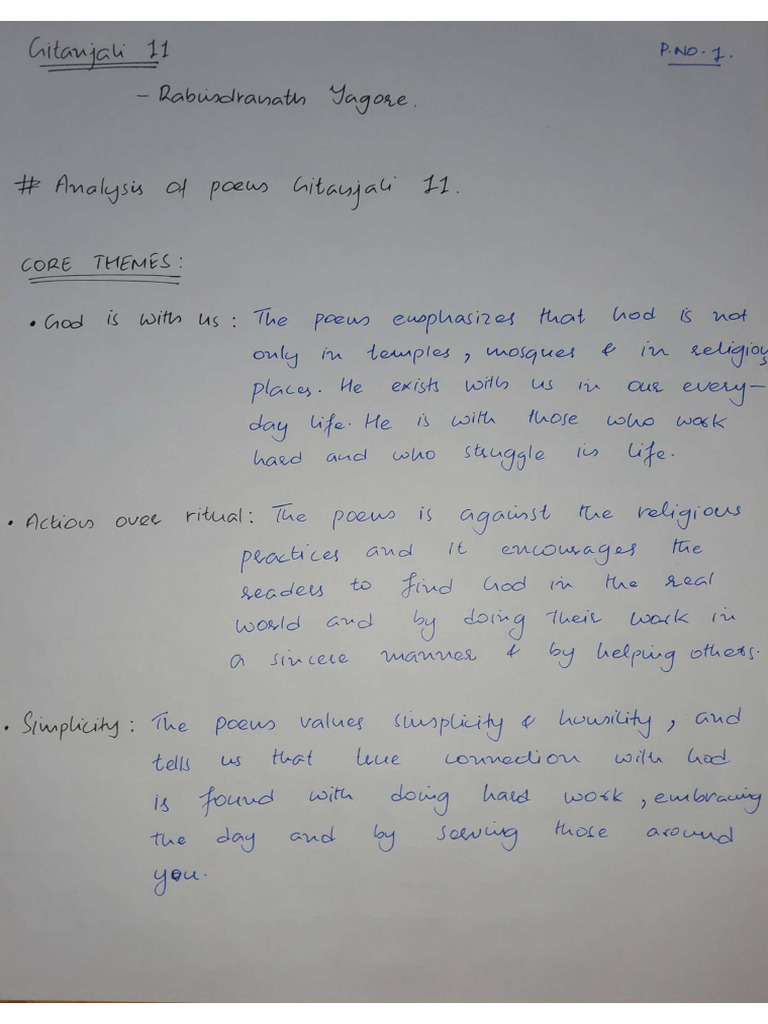 Gitanjali 11
P.NO. 1.
- Rabindranath Tagore.
# Analysis of poem Gitanjali 11.
CORE THEMES:
• God is with us: The poem emphasizes that God is not
only in temples, mosques & in religious
places. He exists with us in our every-
day life. He is with those who work
hard and who struggle in life.
• Action over ritual: The poem is against the religious
practices and it encourages the
readers to find God in the real
world and by doing their work in
a sincere manner & by helping others.
• Simplicity: The poem values simplicity & humility, and
tells us that true connection with God
is found with doing hard work, embracing
the day and by serving those around
you.